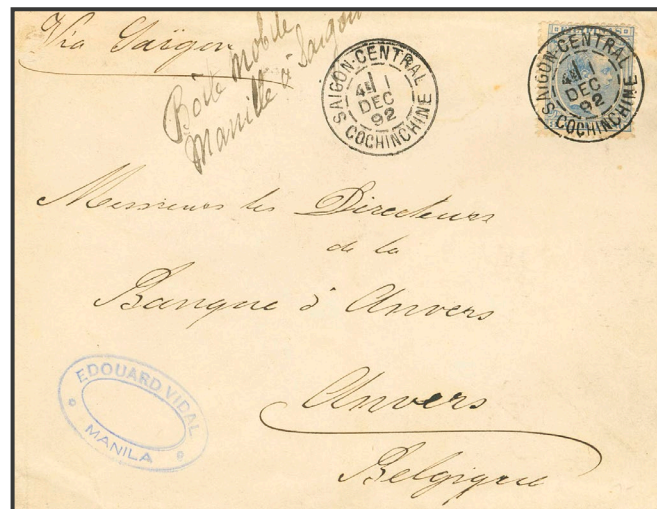 Via Saïgon
Boîte mobile
Manille à Saïgon
SAIGON-CENTRAL
4E 1
DEC
92
COCHINCHINE
SAIGON-CENTRAL
4E 1
DEC
92
COCHINCHINE
Messieurs les Directeurs
de la
Banque d'Anvers
Anvers
Belgique
EDOUARD VIDAL
MANILA